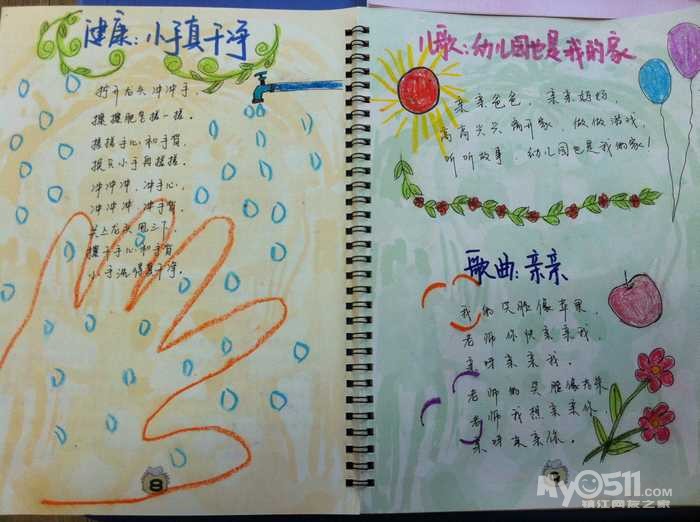 健康:小手真干净
打开龙头冲冲手,
搓搓肥皂搓一搓。
搓搓手心和手背,
换只小手再搓搓。
冲冲冲,冲手心,
冲冲冲,冲手背。
关上龙头甩三下,
擦干手心和手背
小手洗得真干净。
8
儿歌:幼儿园也是我的家
亲亲爸爸,亲亲妈妈,
高高兴兴离开家,做做游戏,
听听故事,幼儿园也是我的家!
歌曲:亲亲
我的笑脸像苹果,
老师你快亲亲我,
亲呀亲亲我。
老师的笑脸像花朵
老师我想亲亲你,
亲呀亲亲你。
9
My0511.com
镇江网友之家